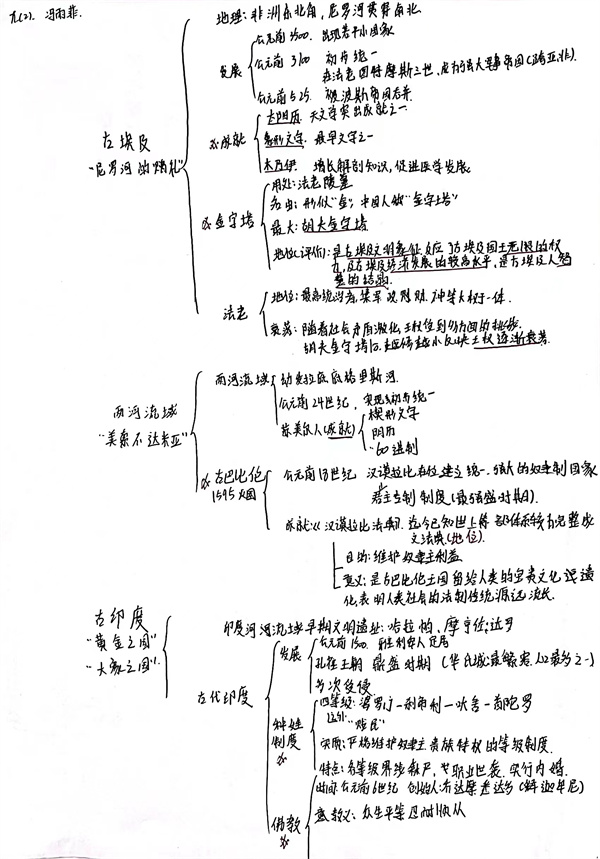 九(2). 冯雨菲.
地理: 非洲东北角, 尼罗河贯穿南北
公元前3500. 出现若干小国家
发展 公元前3100 初步统一
公元前525. 被波斯帝国吞并
太阳历. 天文学突出成就之一
※成就 象形文字. 最早文字之一
木乃伊. 增长解剖知识, 促进医学发展.
古埃及
"尼罗河的赠礼"
用处: 法老陵墓
名由: 形似"金", 中国人做"金字塔"
※金字塔 最大: 胡夫金字塔
地位(评价): 是古埃及文明象征, 反应了古埃及国王无限的权
力, 反古埃及经济发展的较高水平, 是古埃及人智
慧的结晶.
法老 地位: 最高统治者, 集军、政、财、神等大权于一体.
衰落: 随着社会矛盾激化, 王权位到多方面的挑战.
胡夫金字塔后, 越修越小反映王权逐渐衰落
两河流域 幼发拉底 底格里斯河.
公元前24世纪, 实现初步统一
苏美尔人(成就) 楔形文字
阴历
60进制
两河流域
"美索不达米亚"
※古巴比伦 公元前18世纪 汉谟拉比在位建立统一、强大的奴隶制国家
1595灭国
君主专制制度(最强盛时期).
成就: 《汉谟拉比法典》. 迄今已知世上第一部体系较为完整成
文法典(地位).
目的: 维护奴隶主利益
意义: 是古巴比伦王国留给人类的宝贵文化遗
化表明人类社会的法制传统源远流长.
古印度
"黄金之国"
"大象之国"
印度河河流域早期文明遗址: 哈拉帕、摩亨佐·达罗
发展 公元前1500. 雅利安人定居
孔雀王朝 鼎盛时期 (华氏城: 最繁荣、人口最多之一)
多次受侵
古代印度
种姓
制度
※
四等级: 婆罗门-刹帝利-吠舍-首陀罗
以外: "贱民"
实质: 严格维护奴隶主贵族特权的等级制度.
特点: 各等级界线森严, 职业世袭. 实行内婚.
佛教
※
时间: 公元前6世纪 创始人: 乔达摩·悉达多(释迦牟尼)
教义: 众生平等 忍耐顺从